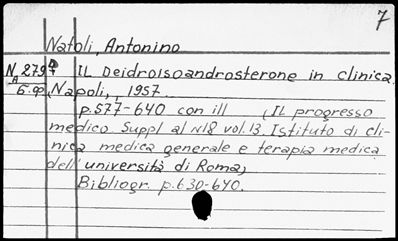 7
Natoli, Antonino
IL Deidroisoandrosterone in clinica.
Napoli, 1957.
p.577-640 con ill (IL progresso
medico Suppl al N18 vol.13. Istituto di cli-
nica medica generale e terapia medica
dell' università di Roma)
Bibliogr. p.630-640.